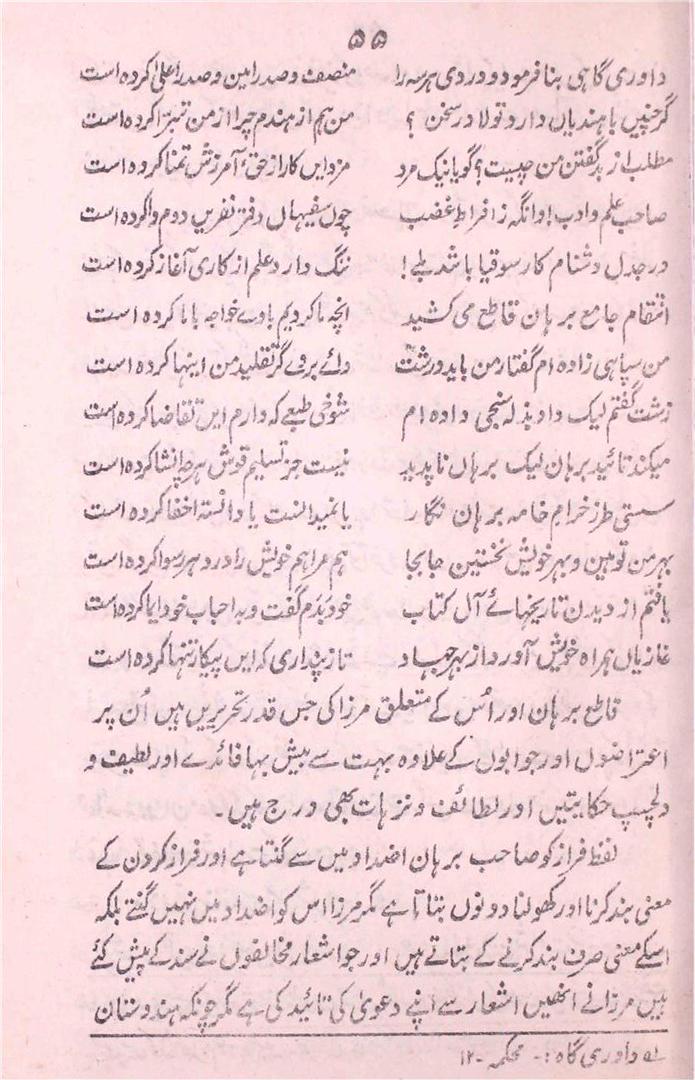 ۵۵
داوری گاہی بنا فرمود و دروی ہر سہ را منصف و صدر امین و صدر اعلیٰ کردہ است
گر چنیں با ہندیاں دارد تولا در سخن ؟ من ہم از ہندم چرا از من تبرّا کردہ است
مطلب از بد گفتن من چیست؟ گویا نیک مرد مزد ایں کار از حق آمرزش تمنا کردہ است
صاحب علم و ادب! وانگہ ز افراط غضب چوں سفیہاں دفتر نفریں و دم وا کردہ است
در جدل دشنام کار سوقیا باشد بلے! ننگ دارد علم از کاری آغا کردہ است
انتقام جامع برہان قاطع می کشید انچہ ما کردیم با وے خواجہ با ما کردہ است
من سپاہی زادہ ام گفتار من باید درشت وائے بر وی گر تقلید من اینہا کردہ است
زشت گفتم لیک داد بذلہ سنجی دادہ ام شوخی طبعے کہ دارم ایں تقاضا کردہ است
میکند تائید برہان لیک برہاں ناپدید نیست جز تسلیم قولش ہر چہ انشا کردہ است
سستی طرز خرام خامہ برہان نگار یا نمیدانست یا دانستہ اخفا کردہ است
بہر من توہین و بہر خویش تحسین جابجا ہم مرا ہم خویش را در دہر رسوا کردہ است
یافتم از دیدن تاریخہائے آں کتاب خود بدم گفت و بہ احباب خود ایما کردہ است
غازیاں ہمراہ خویش آورد از بہر جہاد تا نہ پنداری کہ ایں پیکار تنہا کردہ است
قاطع برہان اور اُس کے متعلق مرزا کی جس قدر تحریریں ہیں اُن پر
اعتراضوں اور جوابوں کے علاوہ بہت سے بیش بہا فائدے اور لطیف و
دلچسپ حکایتیں اور لطائف و نزہات بھی درج ہیں۔
لفظ فراز کو صاحب برہان اضداد میں سے گنتا ہے اور فراز کردن کے
معنی بند کرنا اور کھولنا دونوں بتاتا ہے مگر مرزا اس کو اضداد میں نہیں گنتے بلکہ
اسکے معنی صرف بند کرنے کے بتاتے ہیں اور جو اشعار مخالفوں نے سند کے پیش کئے
ہیں مرزا نے انھیں اشعار سے اپنے دعویٰ کی تائید کی ہے مگر چونکہ ہندوستان
لہ داوری گاہ :- محکمہ -۱۲